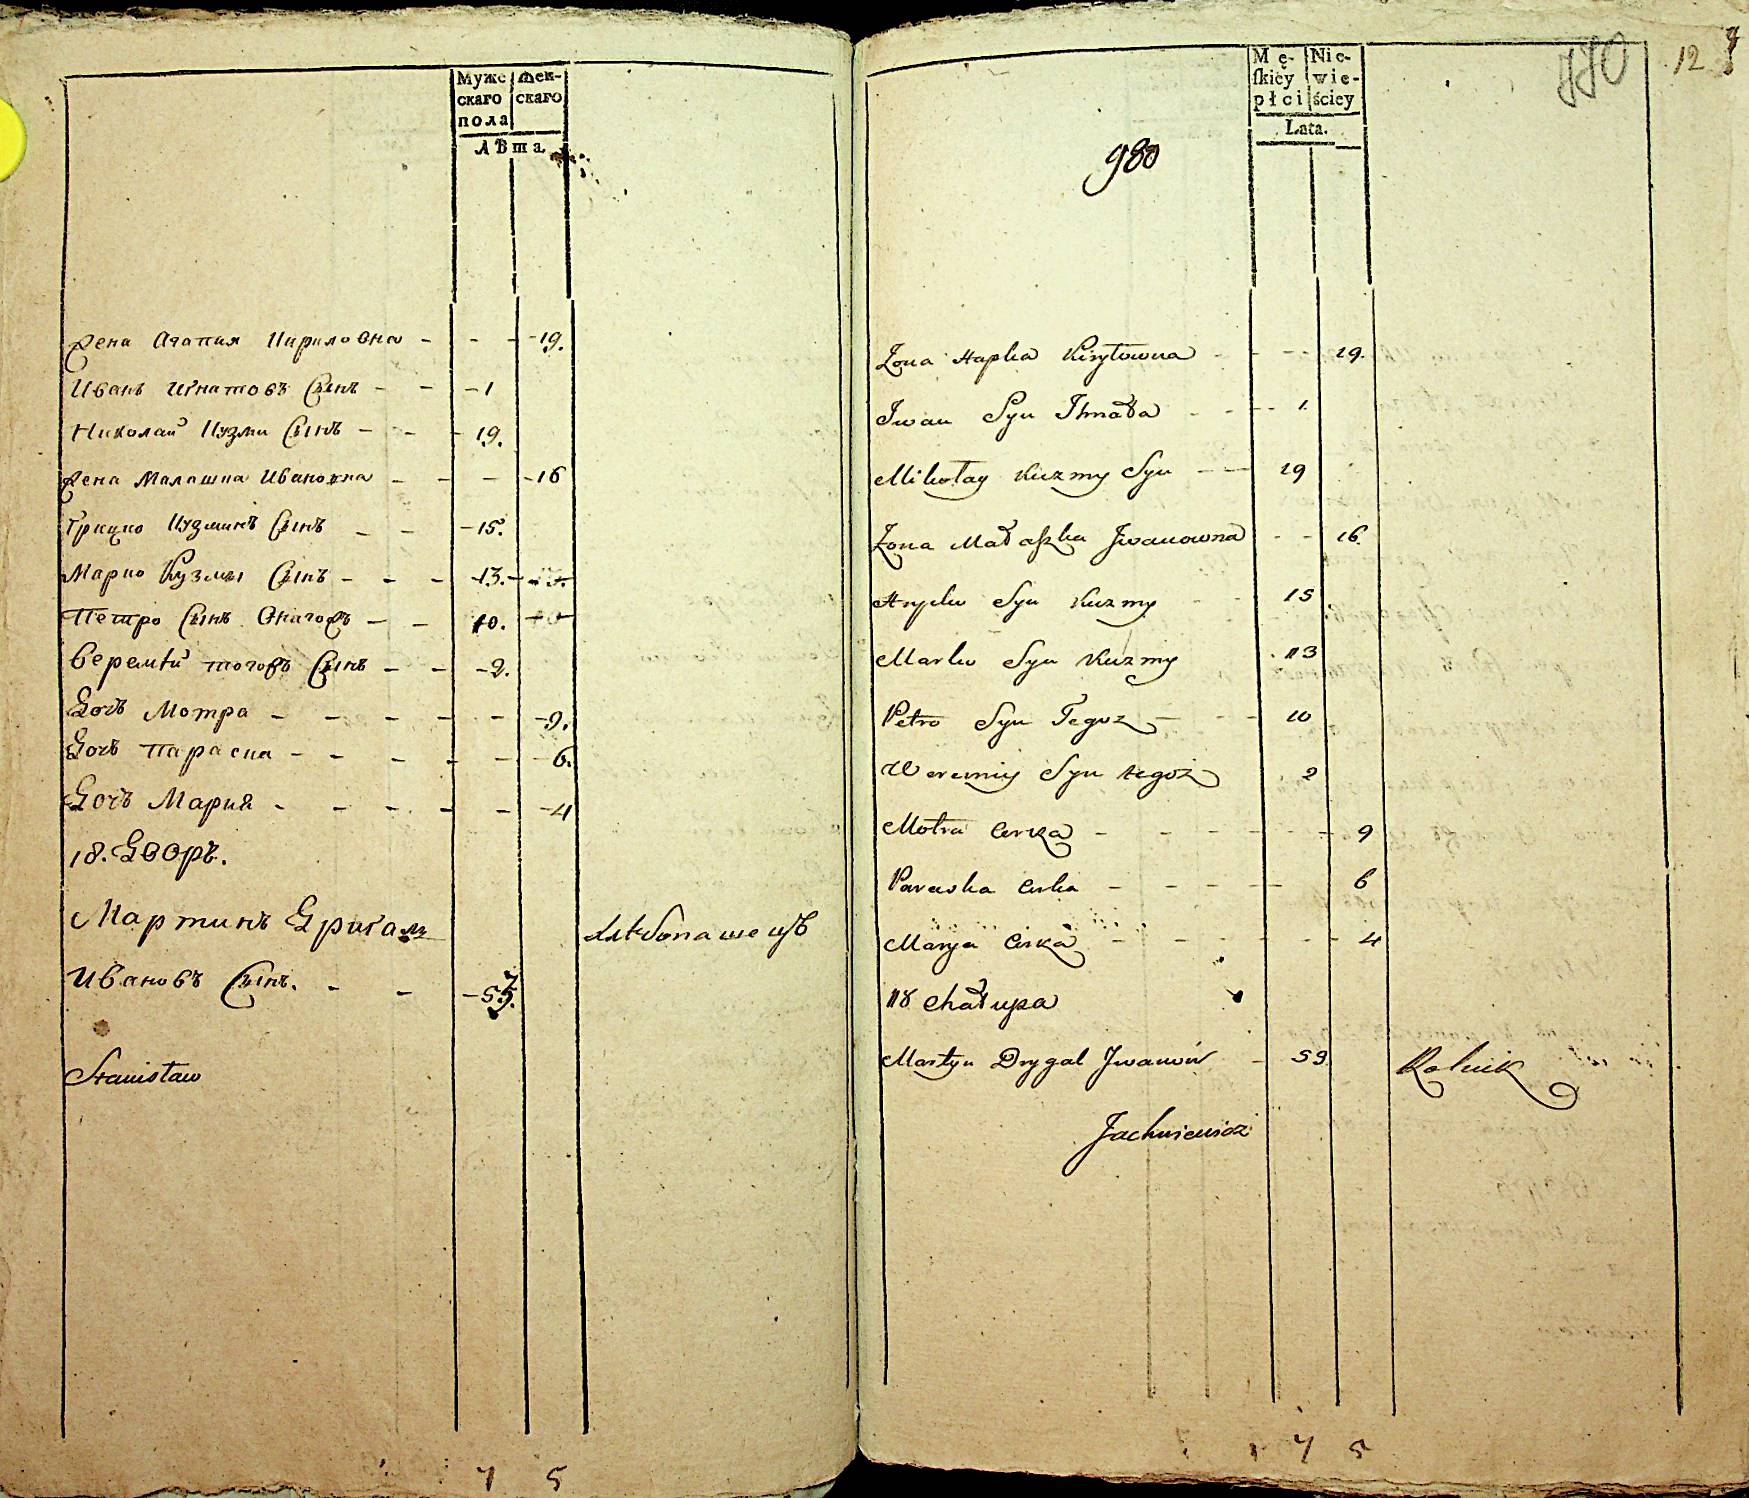 Муже Жен-
скаго скаго
пола
Лѣта.
Жена Агапия Кириловна - - - -19.
Иванъ Игнатовъ Сынъ - - -1
Николай Кузми Сынъ - - - 19.
Жена Малашка Ивановна - - - -16
Грицко Кузминъ Сынъ - - -15.
Марко Кузмы Сынъ - - - -13.-
Петро Сынъ Онагожъ - - 10.
Веремѣй тогожъ Сынъ - - -2.
Дочъ Мотра - - - - - -9.
Дочъ Параска - - - - - -6.
Дочъ Мария - - - - - -4
18. Дворъ.
Мартинъ Дригаль Хлѣбопашецъ
Ивановъ Сынъ. - -
Stanisław
7 5
Mę- Nie-
skiey wie-
płci ściey
Lata.
12
980
Zona Hapka Kiryłowna - - - 19.
Iwan Syn Ihnata - - - 1.
Mikołay Kuzmy Syn - - 19
Zona Małaszka Jwanowna - - 16.
Hryćko Syn Kuzmy - - 15
Marko Syn Kuzmy 13
Petro Syn Tegoz - - - 10
Weremiy Syn tegoż 2
Motra Curka - - - - - 9
Paraska Curka - - - - - 6
Marya Curka - - - - - 4
18 Chałupa
Martyn Drygal Jwanów - 59. Rolnik
Jachniewicz
7 5